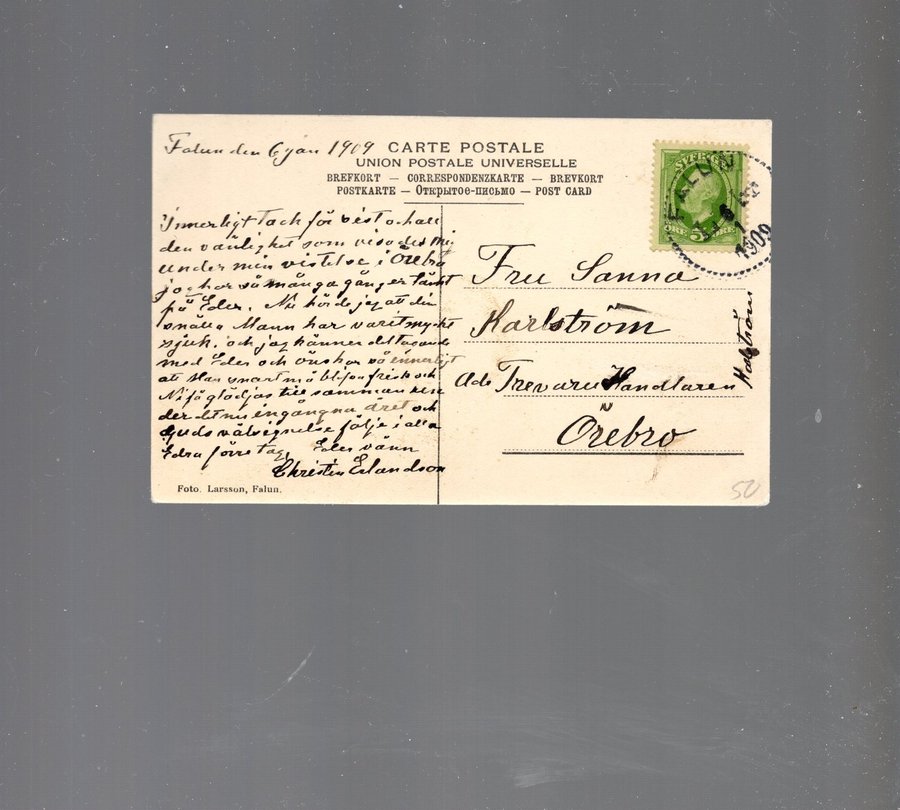 Falun den 6 jan 1909
CARTE POSTALE
UNION POSTALE UNIVERSELLE
BREFKORT — CORRESPONDENZKARTE — BREVKORT
POSTKARTE — Открытое-письмо — POST CARD
SVERIGE
ÖRE 5 ÖRE
FALUN
6
1909
Innerligt Tack för vist o hall
den vänlighet som visades mig
under min vistelse i Örebro
jag har så många gånger tänkt
på Eder. Nu hörde jag att din
snälla Mann har varit mycket
sjuk. och jag känner deltagande
med Eder och önskar så innerligt
att Han snart må bli frisk och
Ni få glädjas till samman un
der det nu ingångna året och
Guds välsignelse följe i alla
Edra företag. Eder vänn
Christin Erlandson
Foto. Larsson, Falun.
Fru Sanna
Karlström
Ads Trevaru Handlaren
Örebro
50